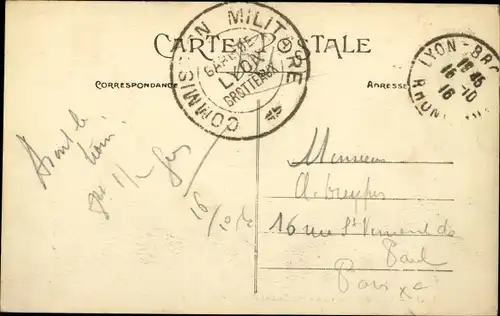 CARTE POSTALE
COMMISSION MILITAIRE
GARE DE
LYON
BROTTEAUX
LYON-BRO
16 45
16-10
16
RHONE
CORRESPONDANCE
ADRESSE
Avant le
train.
16/10/16
Monsieur
A. Dreyfus
16 rue St Vincent de
Paul
Paris x e